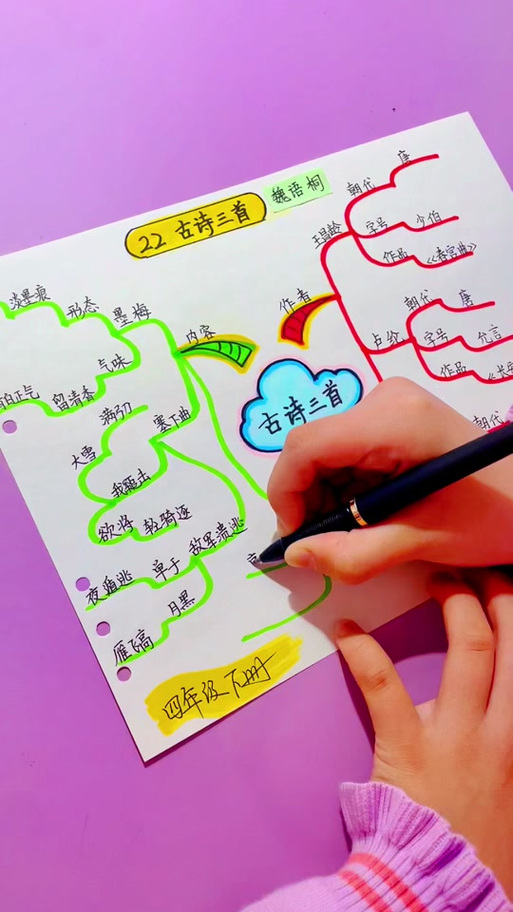 22 古诗三首
魏语桐
作者
王昌龄
朝代
唐
字号
少伯
作品
《春宫曲》
卢纶
朝代
唐
字号
允言
作品
《长安
朝代
古诗三首
内容
墨梅
形态
淡墨痕
气味
留清香
正气
塞下曲
满弓
大雪
我追击
欲将
轻骑逐
敌军溃逃
单于
夜遁逃
月黑
雁飞高
四年级下册